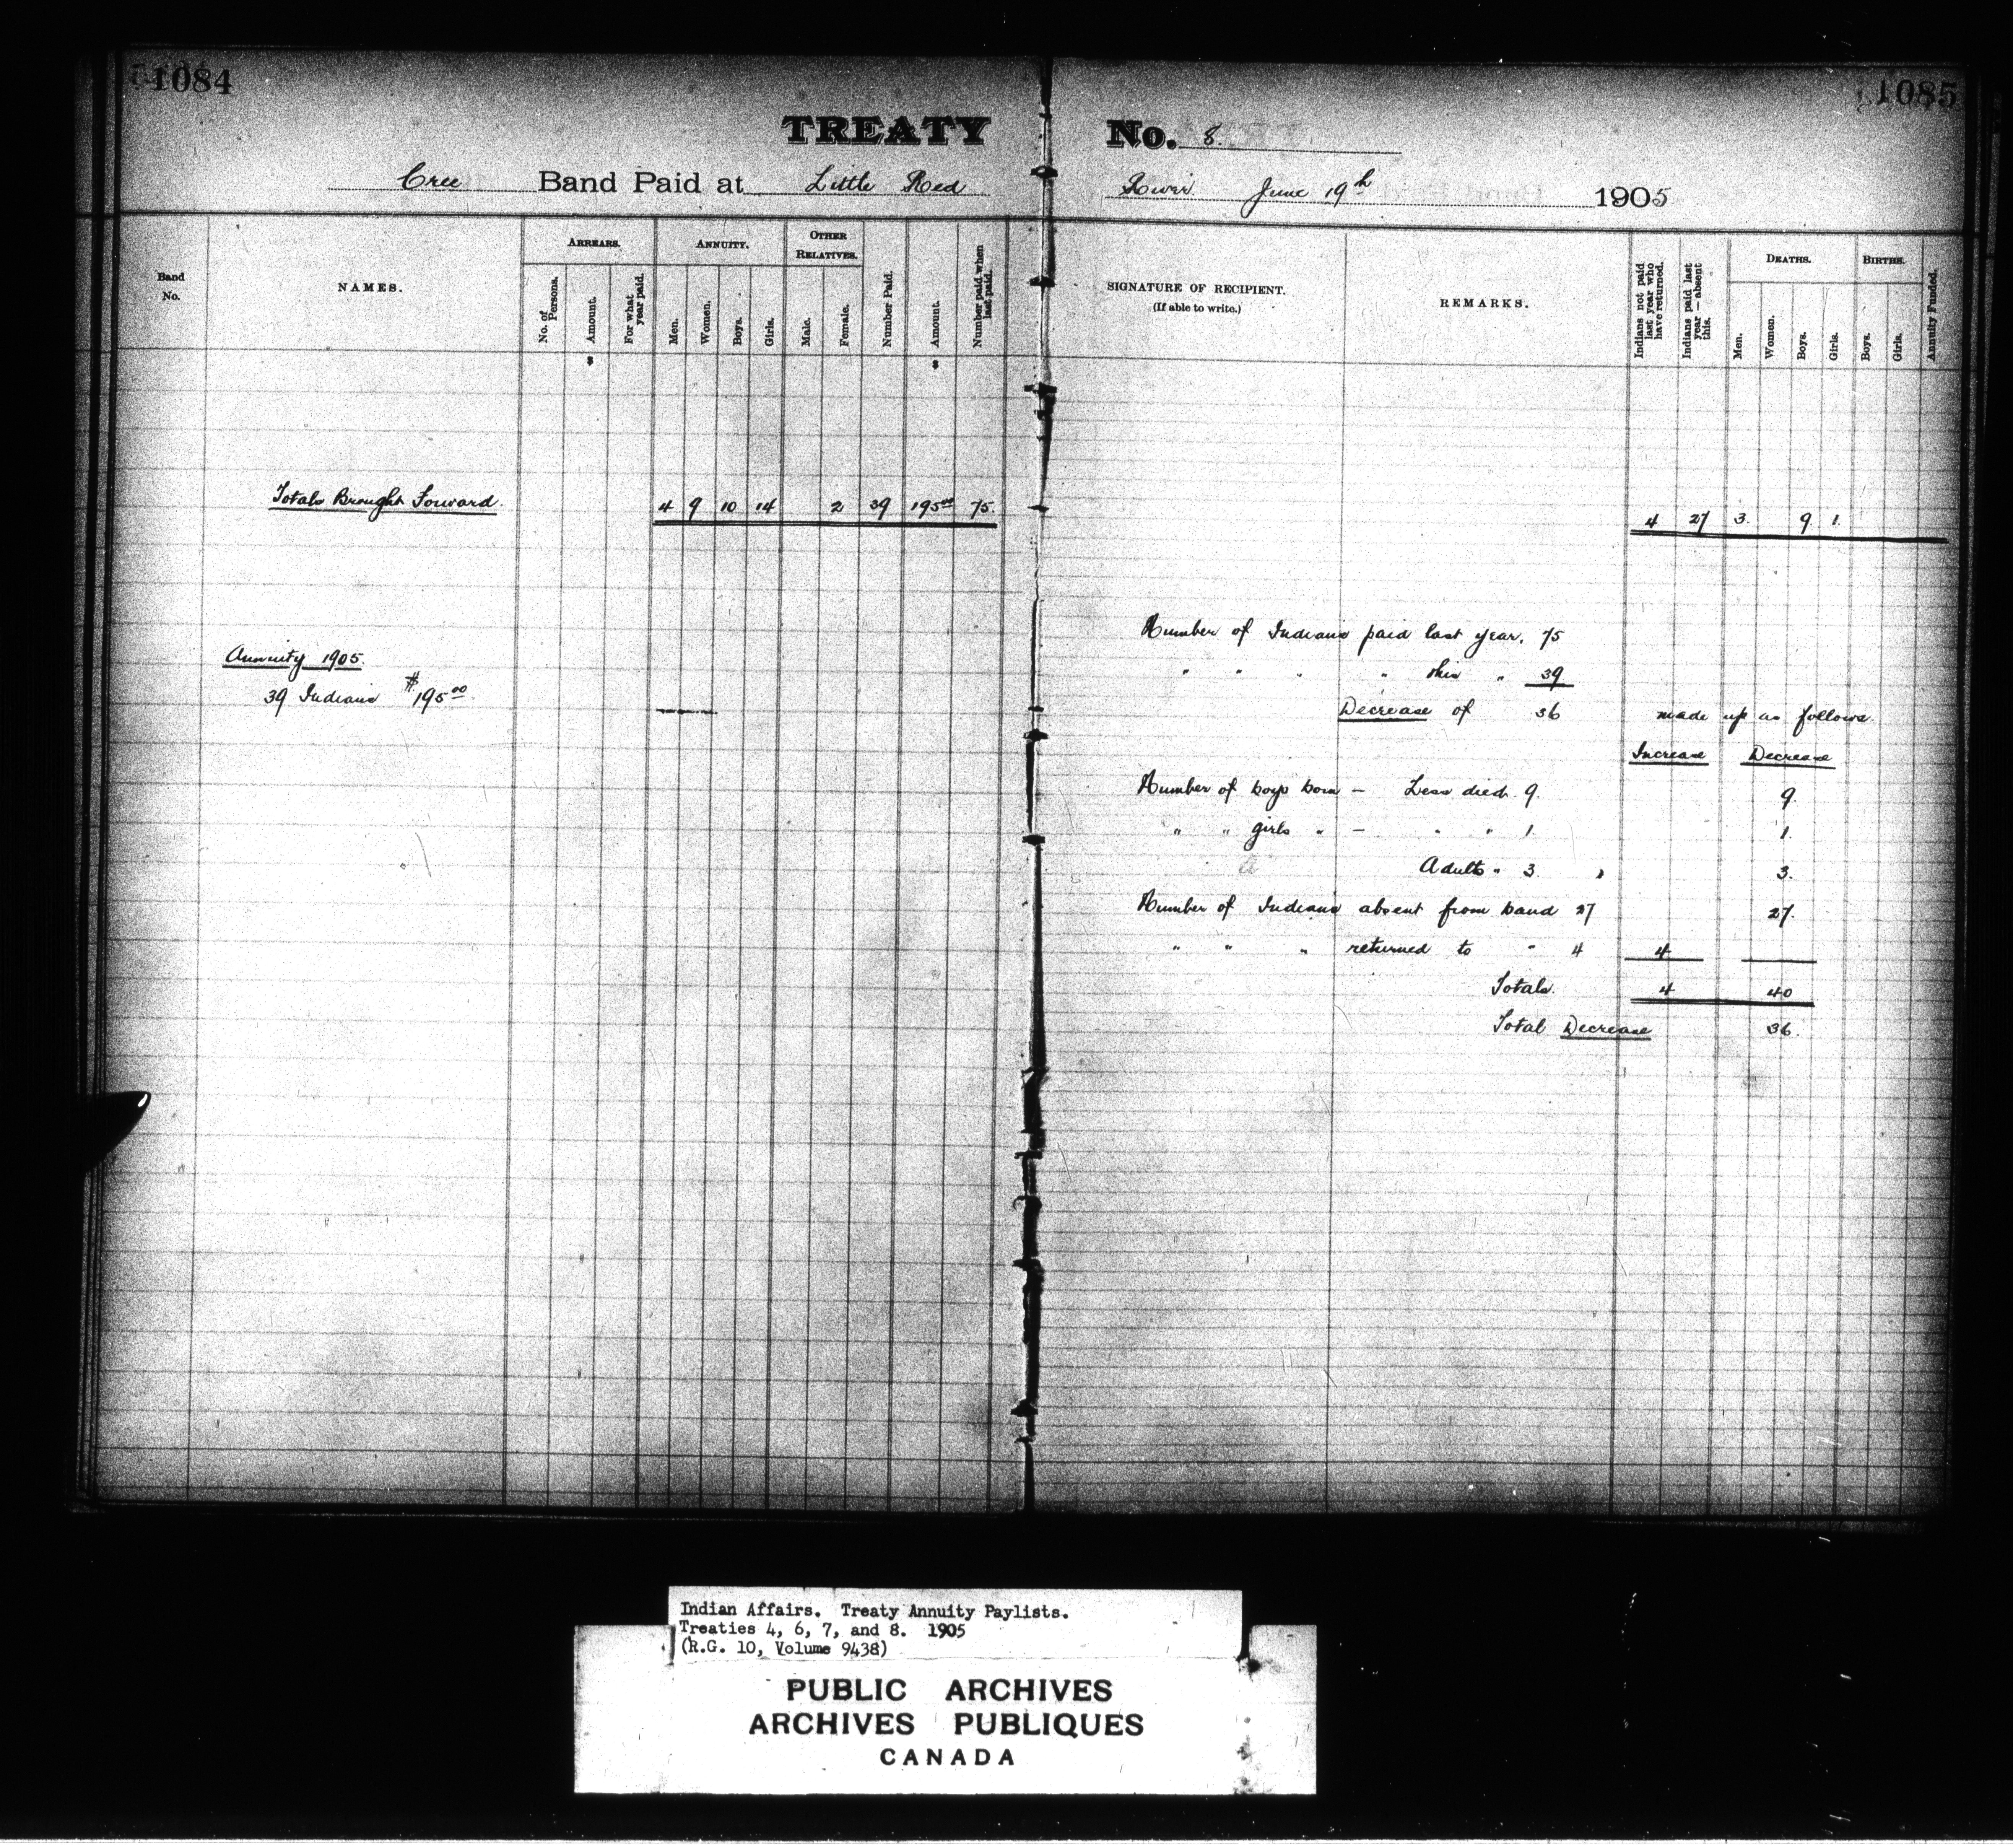 1084
1085
TREATY No. 8.
Cree Band Paid at Little Red River June 19th 1905
Band No.
NAMES.
ARREARS.
No. of Persons.
Amount.
For what year paid.
ANNUITY.
Men.
Women.
Boys.
Girls.
OTHER RELATIVES.
Male.
Female.
Number Paid.
Amount.
Number paid when last paid.
SIGNATURE OF RECIPIENT.
(If able to write.)
REMARKS.
Indians not paid last year who have returned.
Indians paid last year—absent this.
DEATHS.
Men.
Women.
Boys.
Girls.
BIRTHS.
Boys.
Girls.
Annuity Funded.
$ $
Totals Brought Forward 4 9 10 14 2 39 195.00 75.
4 27 3. 9 1.
Annuity 1905.
39 Indians $195.00
Number of Indians paid last year, 75
" " " " this " 39
Decrease of 36 made up as follows.
Increase Decrease
Number of boys born — Less died 9. 9.
" " girls " — " " 1. 1.
Adults " 3. 3.
Number of Indians absent from band 27 27.
" " " returned to " 4 4
Totals. 4 40
Total Decrease 36.
Indian Affairs. Treaty Annuity Paylists.
Treaties 4, 6, 7, and 8. 1905
(R.G. 10, Volume 9438)
PUBLIC ARCHIVES
ARCHIVES PUBLIQUES
CANADA